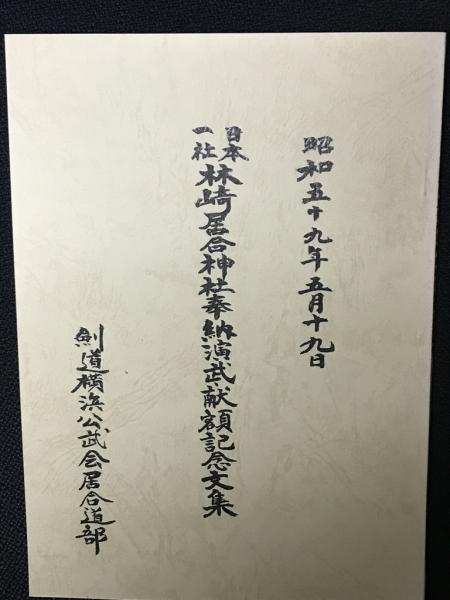 昭和五十九年五月十九日
日本一社 林崎居合神社奉納演武献額記念文集
剣道横浜公武会居合道部